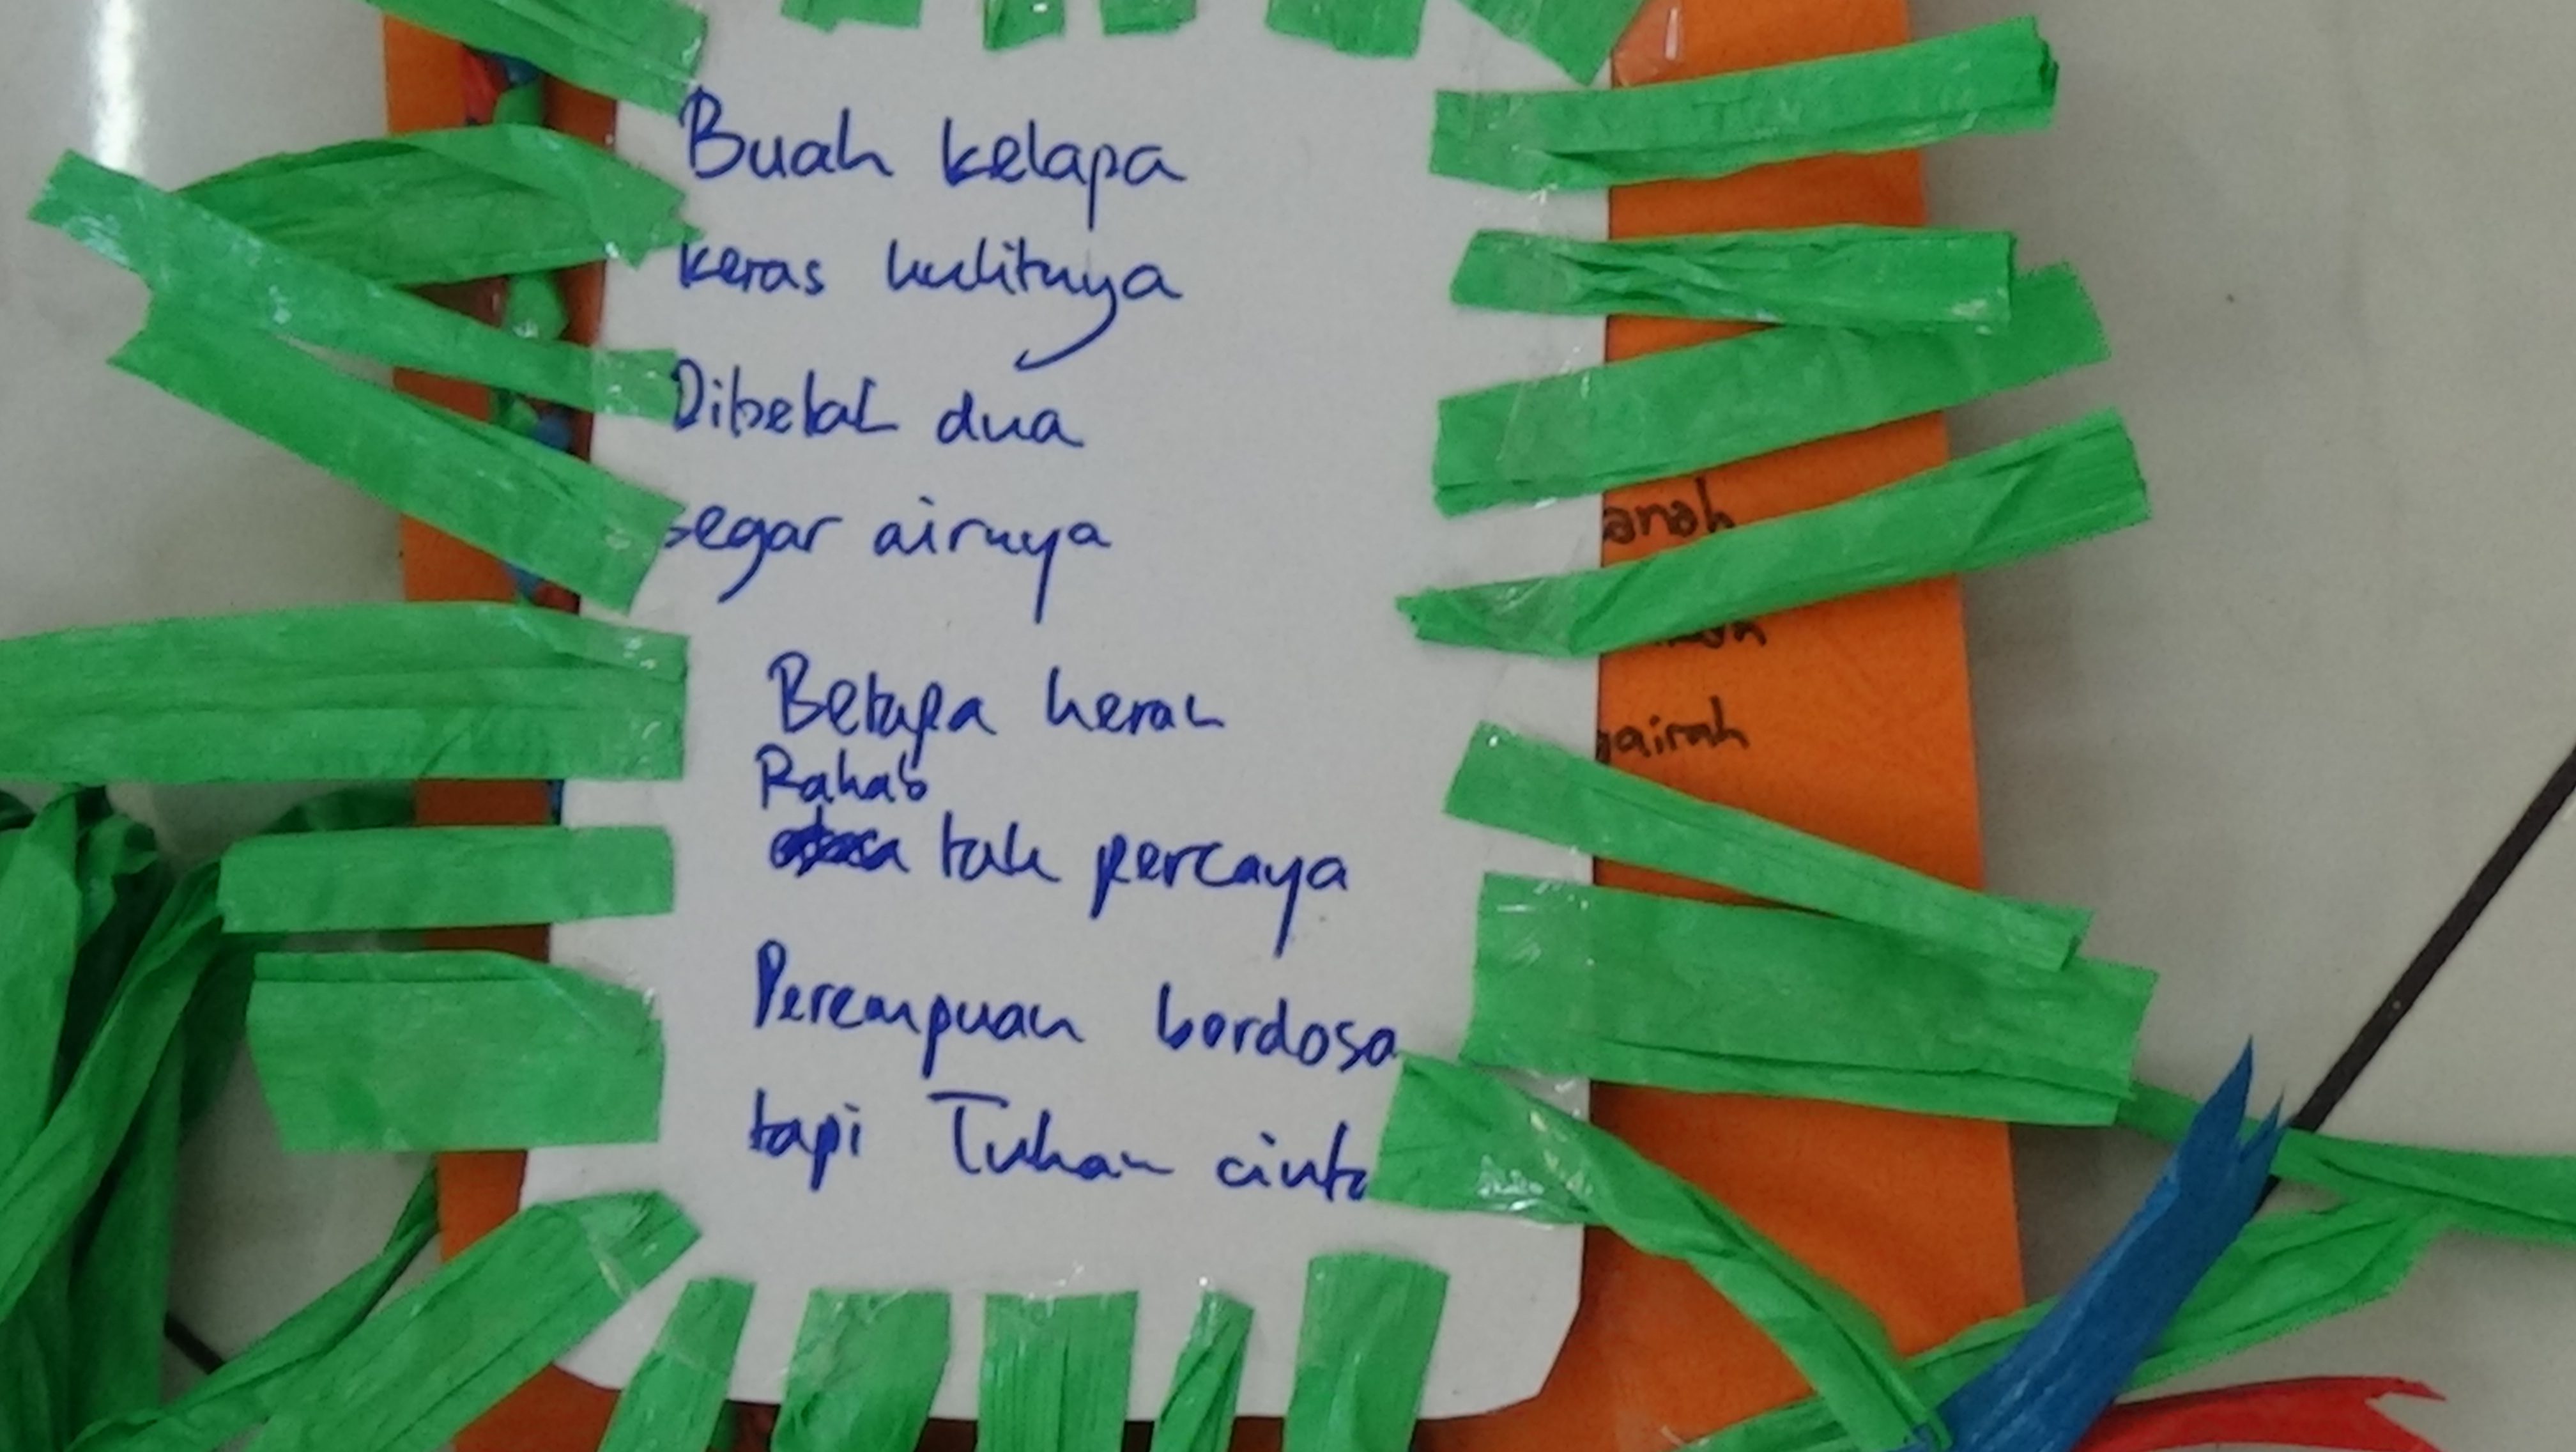 Buah kelapa
keras kulitnya
Dibelah dua
segar airnya
Betapa heran
Rahab
tak percaya
Perempuan berdosa
tapi Tuhan cinta
anah
gairah